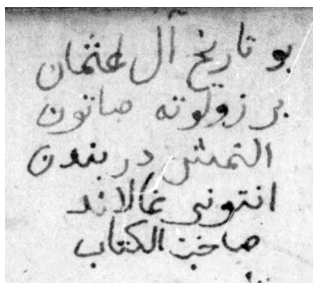 بو تاريخ آل عثمان
بر زولوته صاتون
النمش در بندن
انتوني غالاند
صاحب الكتاب